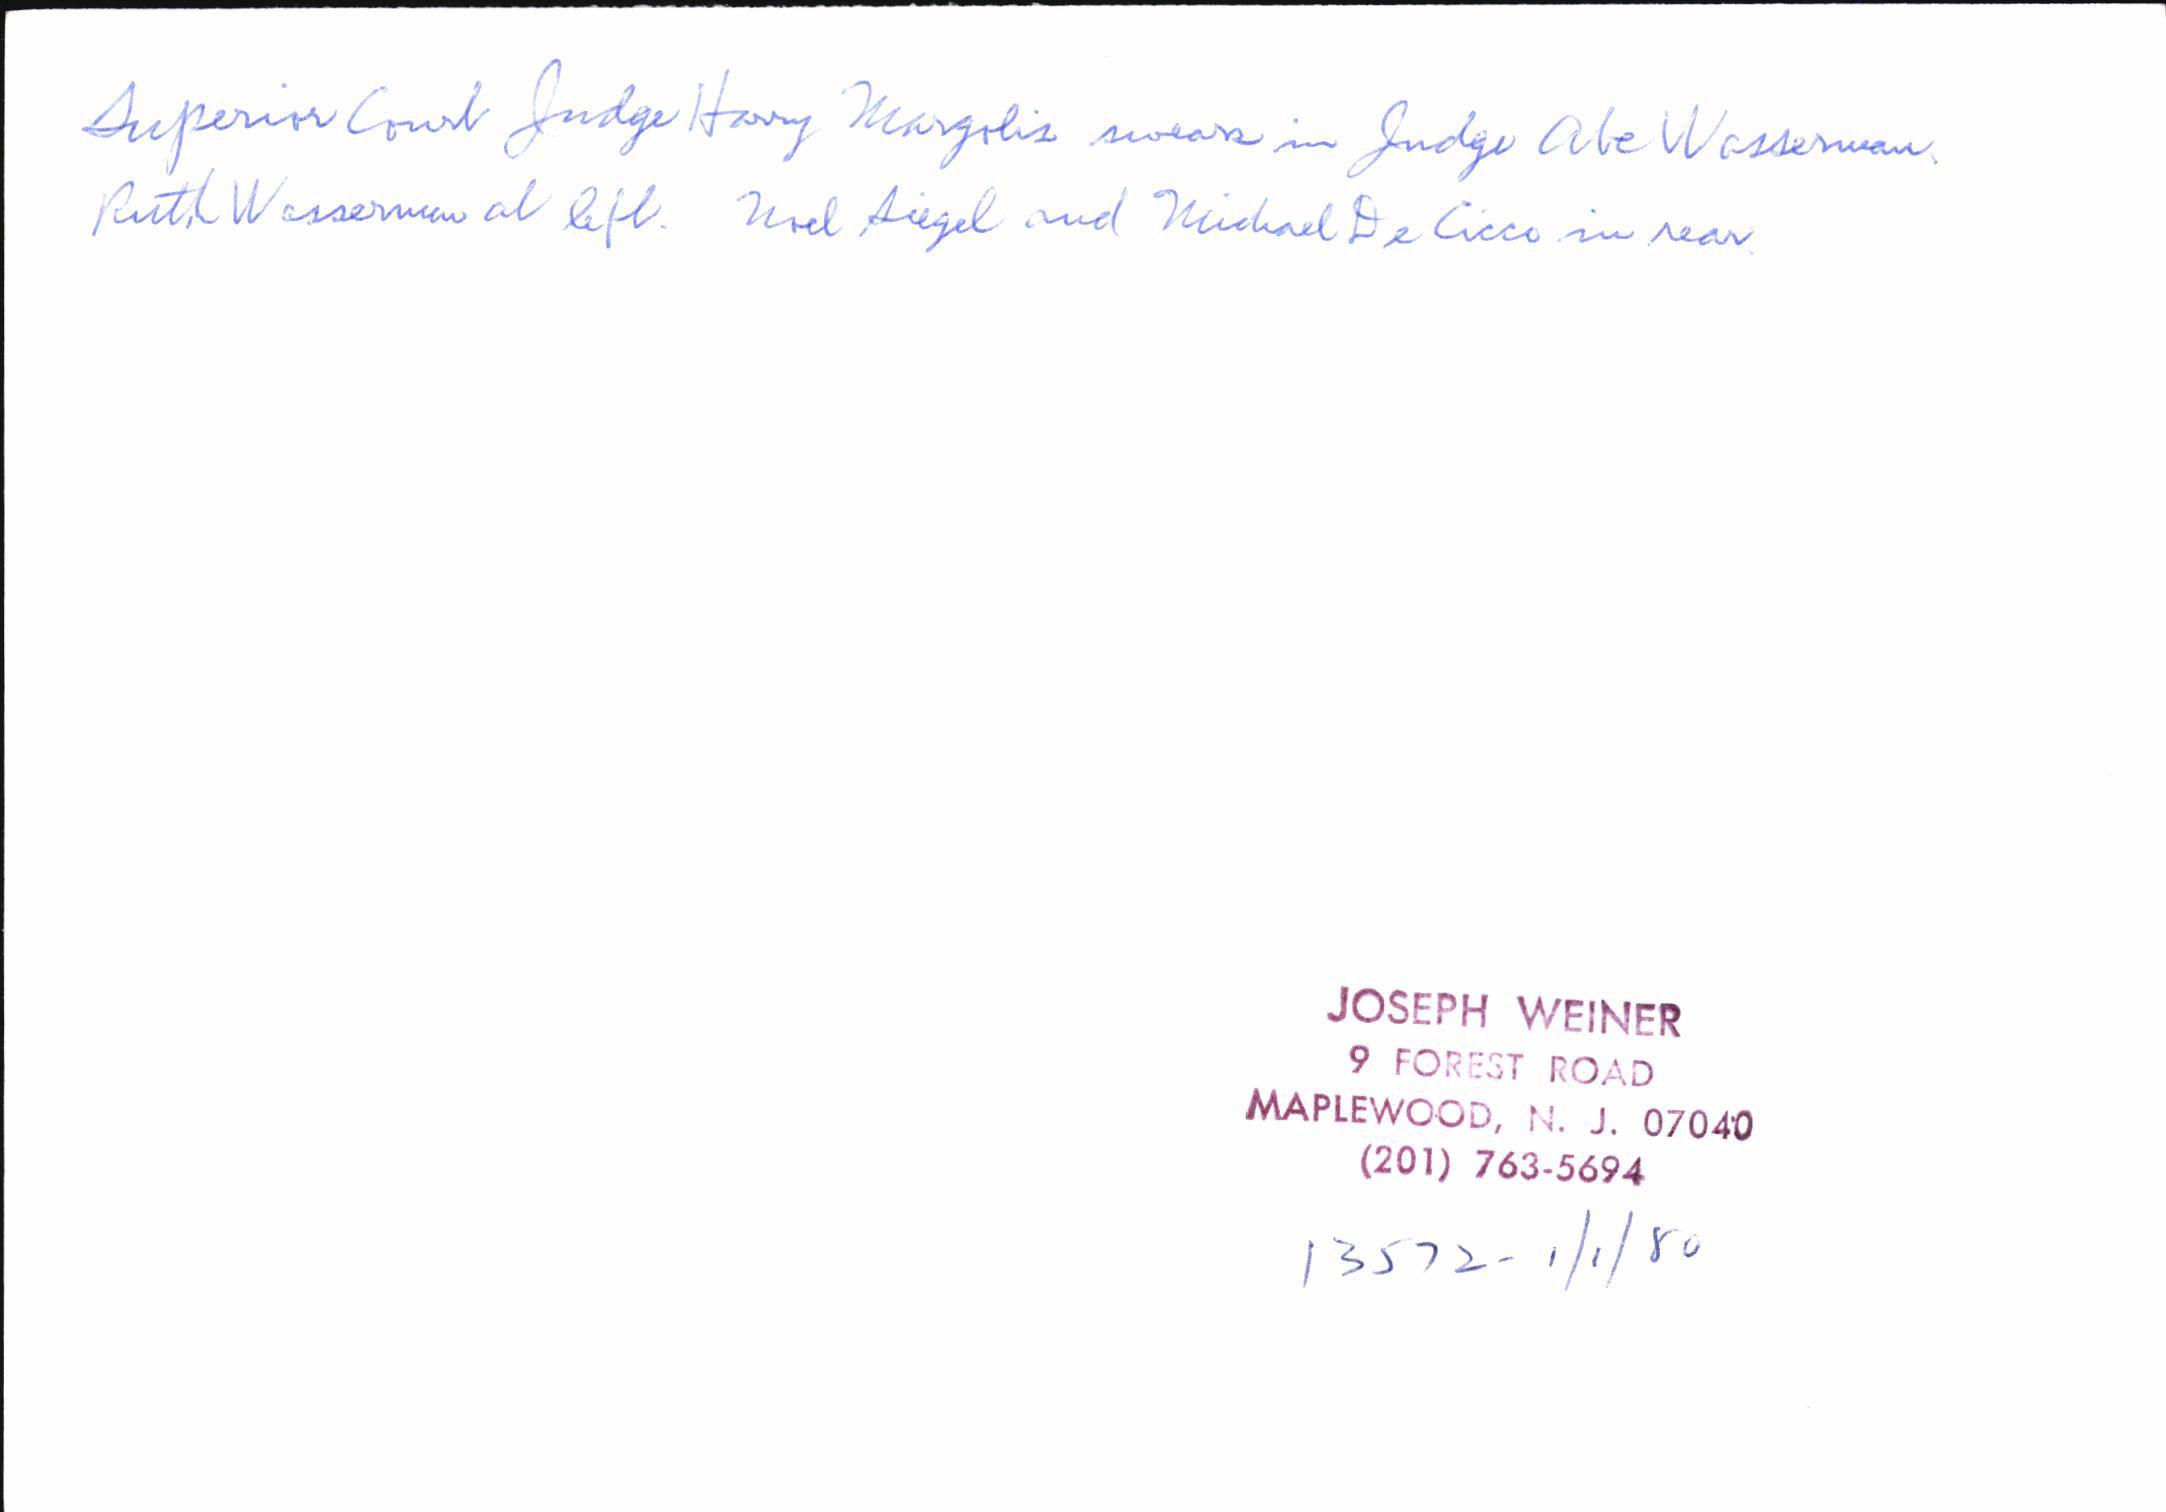 Superior Court Judge Harry Margolis swears in Judge Abe Wasserman.
Ruth Wasserman at left. Noel Siegel and Michael De Cicco in rear.
JOSEPH WEINER
9 FOREST ROAD
MAPLEWOOD, N. J. 07040
(201) 763-5694
13572- 1/1/80